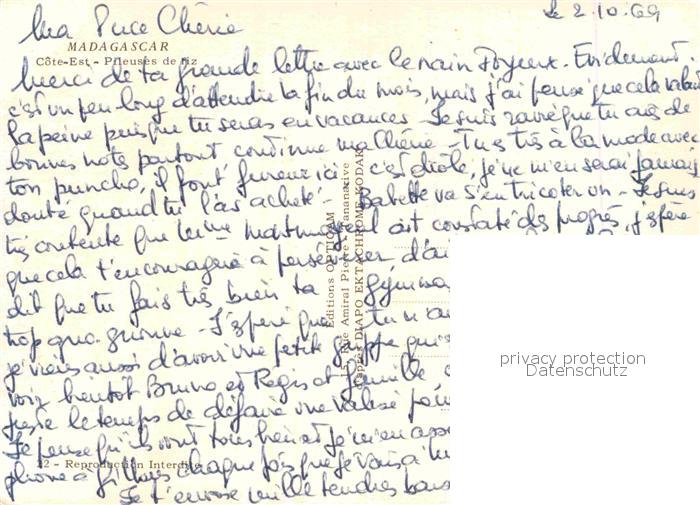 le 2.10.69
Ma Puce Chérie
MADAGASCAR
Côte-Est - Pileuses de riz
Merci de ta grande lettre avec le nain Joyeux. Evidemment,
c'est un peu long d'attendre la fin du mois, mais j'ai pensé que cela valait
la peine puisque tu seras en vacances - Je suis ravie que tu aies de
bonnes notes partout continue ma Chérie - Tu es très à la mode avec
ton puncho, il font fureur ici c'est drôle, je ne m'en serai jamais
doute quand tu l'as acheté - Babette va s'en tricoter un - Je suis
très contente que ait constaté des progrès, j'espère
que cela t'encouragera à persévérer,
dit que tu fais très bien ta
trop gymnas
J'espère que tu n'
je viens aussi d'avoir une petite grippe
voir bientôt Bruno et Regis et famille
juste le temps de défaire une valise pour
Je pense qu'ils vont tous bien et je m'en
phone à chaque fois que je vais à
Je t'envoie mille tendres
Editions OPTICAM
15, Rue Amiral Pierre - Tananarive
d'après DIAPO EKTACHROME KODAK
22 - Reproduction Interdite
privacy protection
Datenschutz